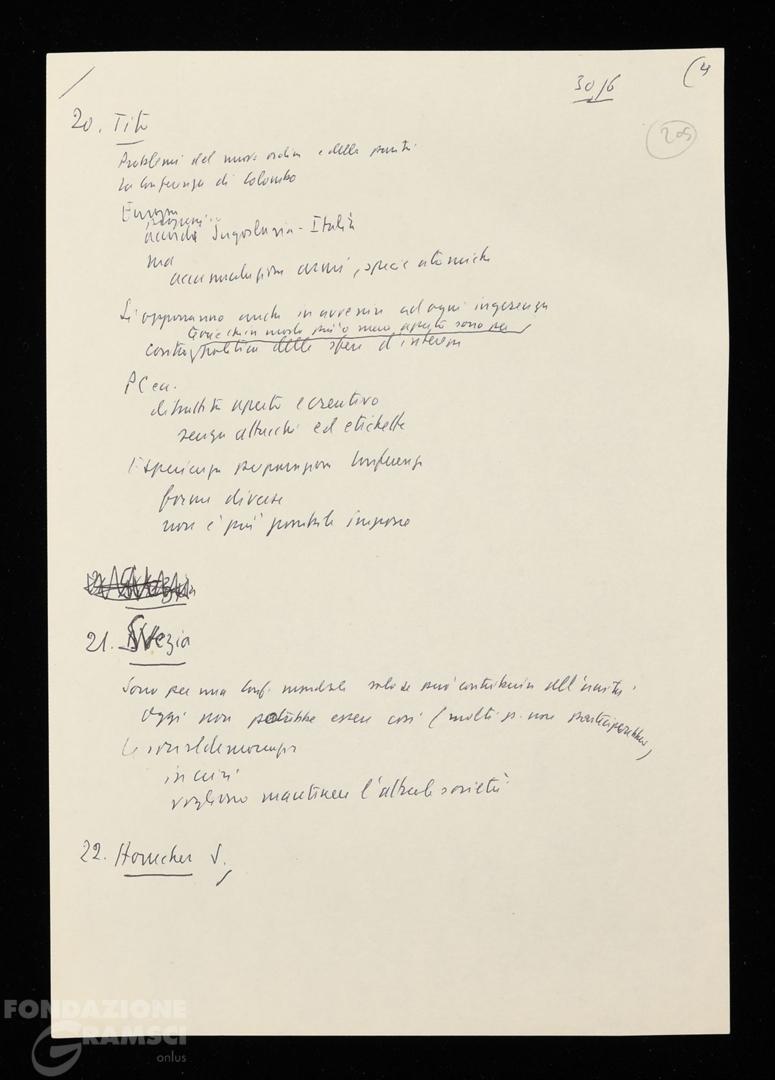 30/6
(4
205
20. Tito
Problemi del nuovo ordine e della parità
La Conferenza di Colombo
Europa
accordo Jugoslavia-Italia
ma
accumulazione armi, specie atomiche
Si opporranno anche in avvenire ad ogni ingerenza
teorie che in modo più o meno aperto sono per
contro politica delle sfere d'interessi
PC eu.
dibattito aperto e creativo
senza attacchi ed etichette
Esperienza preparazione Conferenza
forme diverse
non è più possibile imporre
21. Svezia
Sono per una Conf. mondiale solo se può contribuire all'unità.
Oggi non potrebbe essere così (molti p. non parteciperebbero)
La socialdemocrazia
in crisi
vogliono mantenere l'attuale società
22. Honecker
FONDAZIONE
GRAMSCI
onlus